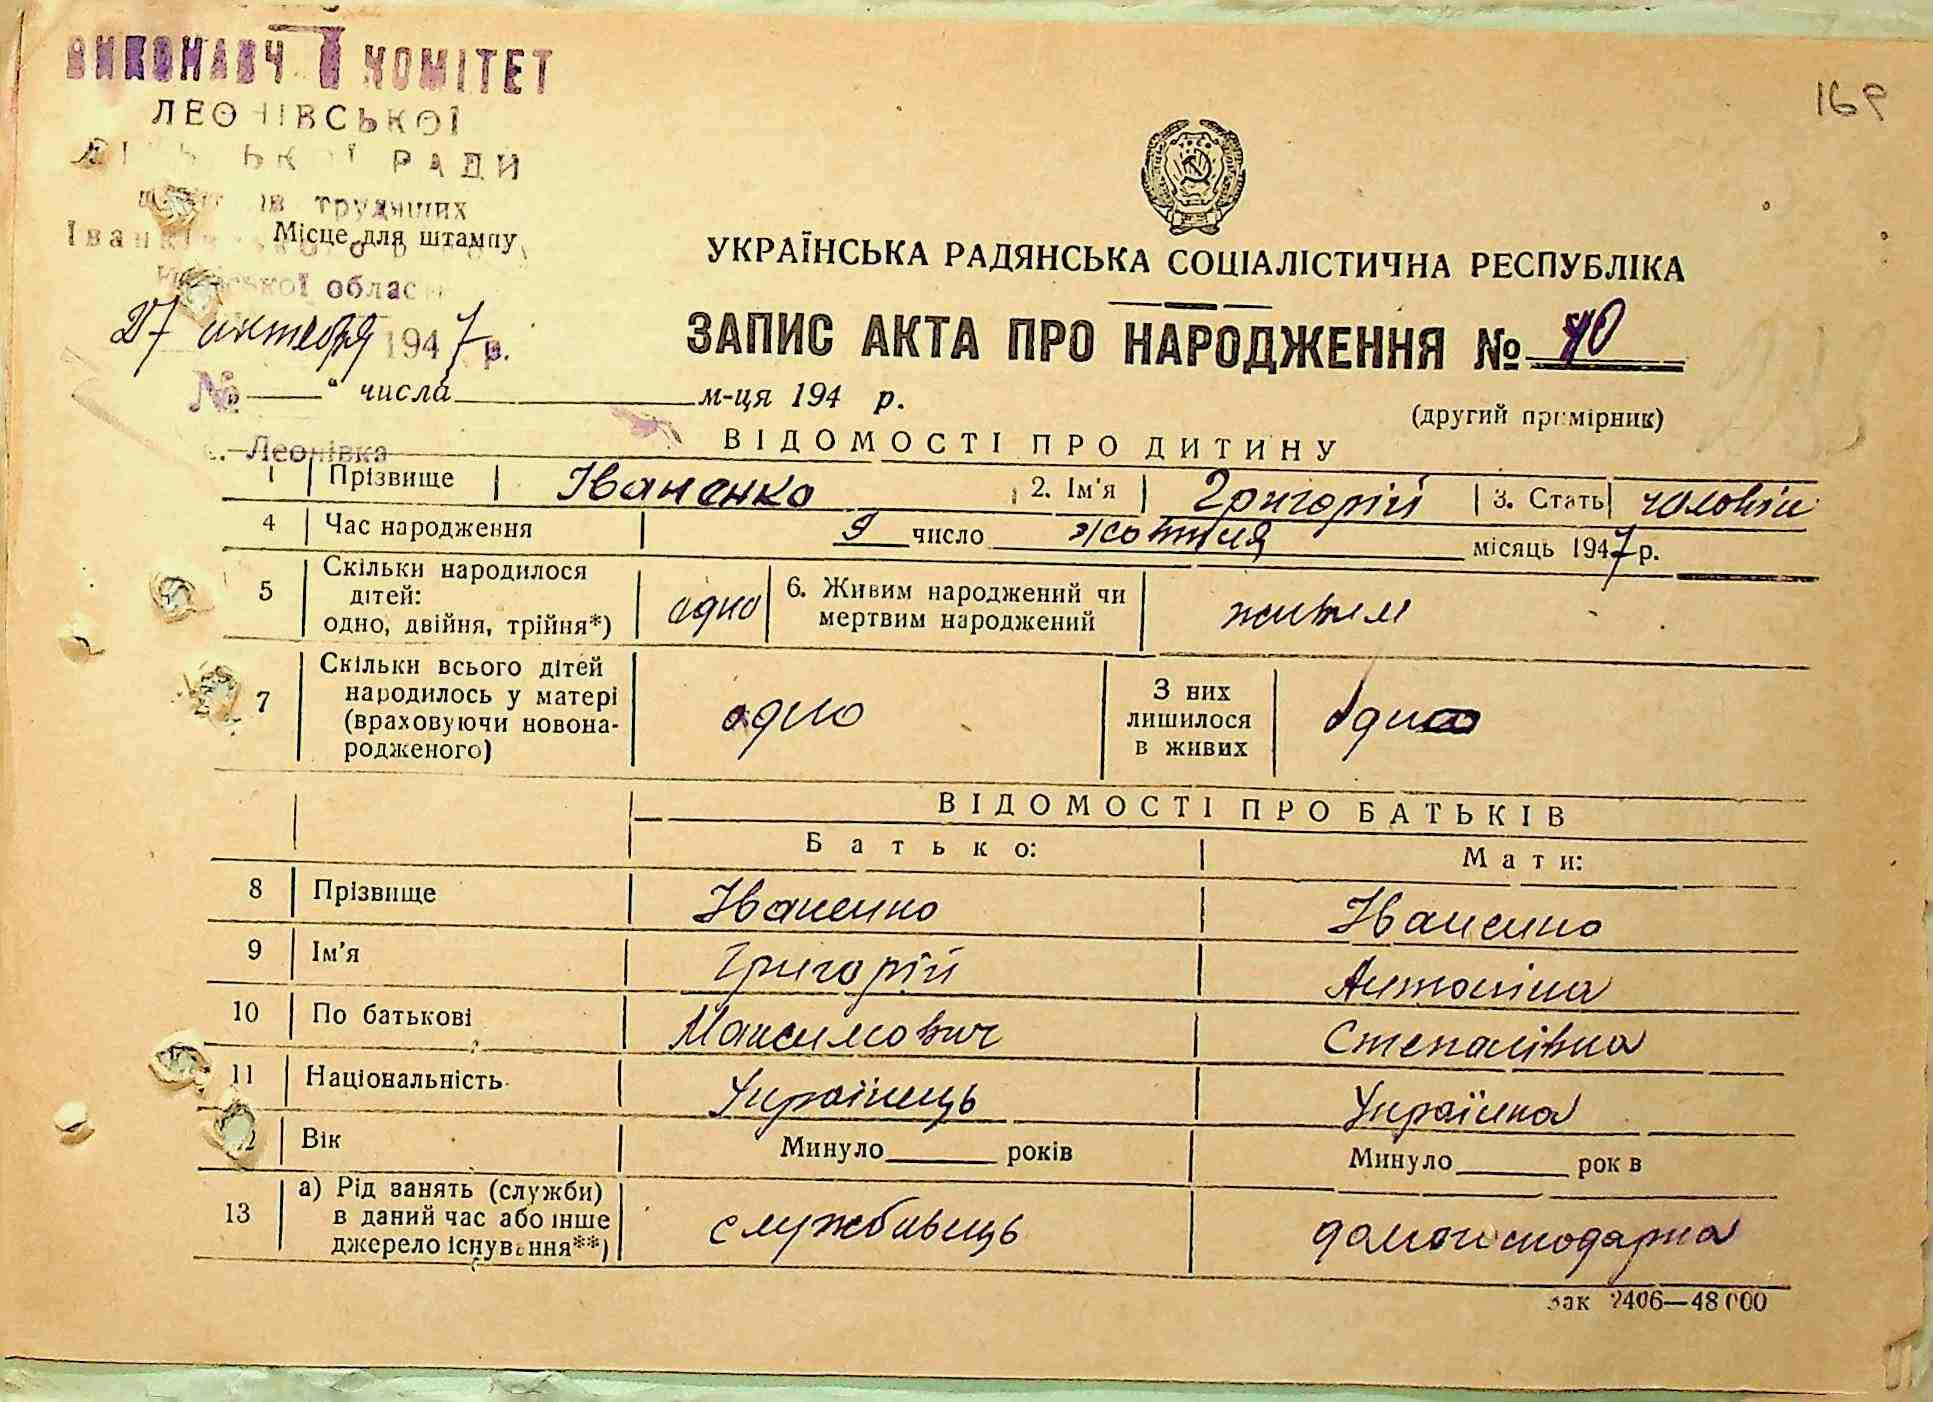 ВИКОНАВЧИЙ КОМІТЕТ
ЛЕОНІВСЬКОЇ
РАДИ
трудящих
Місце для штампу
Київської області
27 октября 1947 р.
№ — " числа м-ця 194 р.
с. Леонівка
169
УКРАЇНСЬКА РАДЯНСЬКА СОЦІАЛІСТИЧНА РЕСПУБЛІКА
ЗАПИС АКТА ПРО НАРОДЖЕННЯ № 40
(другий примірник)
ВІДОМОСТІ ПРО ДИТИНУ
1 Прізвище Іваненко 2. Ім'я Григорій 3. Стать
4 Час народження 9 число жовтня місяць 1947 р.
5 Скільки народилося дітей: одно, двійня, трійня*) одно 6. Живим народжений чи мертвим народжений живим
7 Скільки всього дітей народилось у матері (враховуючи новонародженого) одно З них лишилося в живих одно
ВІДОМОСТІ ПРО БАТЬКІВ
Батько: Мати:
8 Прізвище Іваненко Іваненко
9 Ім'я Григорій Антоніна
10 По батькові Максимович Степанівна
11 Національність Українець Українка
12 Вік Минуло років Минуло років
13 а) Рід занять (служби) в даний час або інше джерело існування**) службовець домогосподарка
Зак 2406—48000